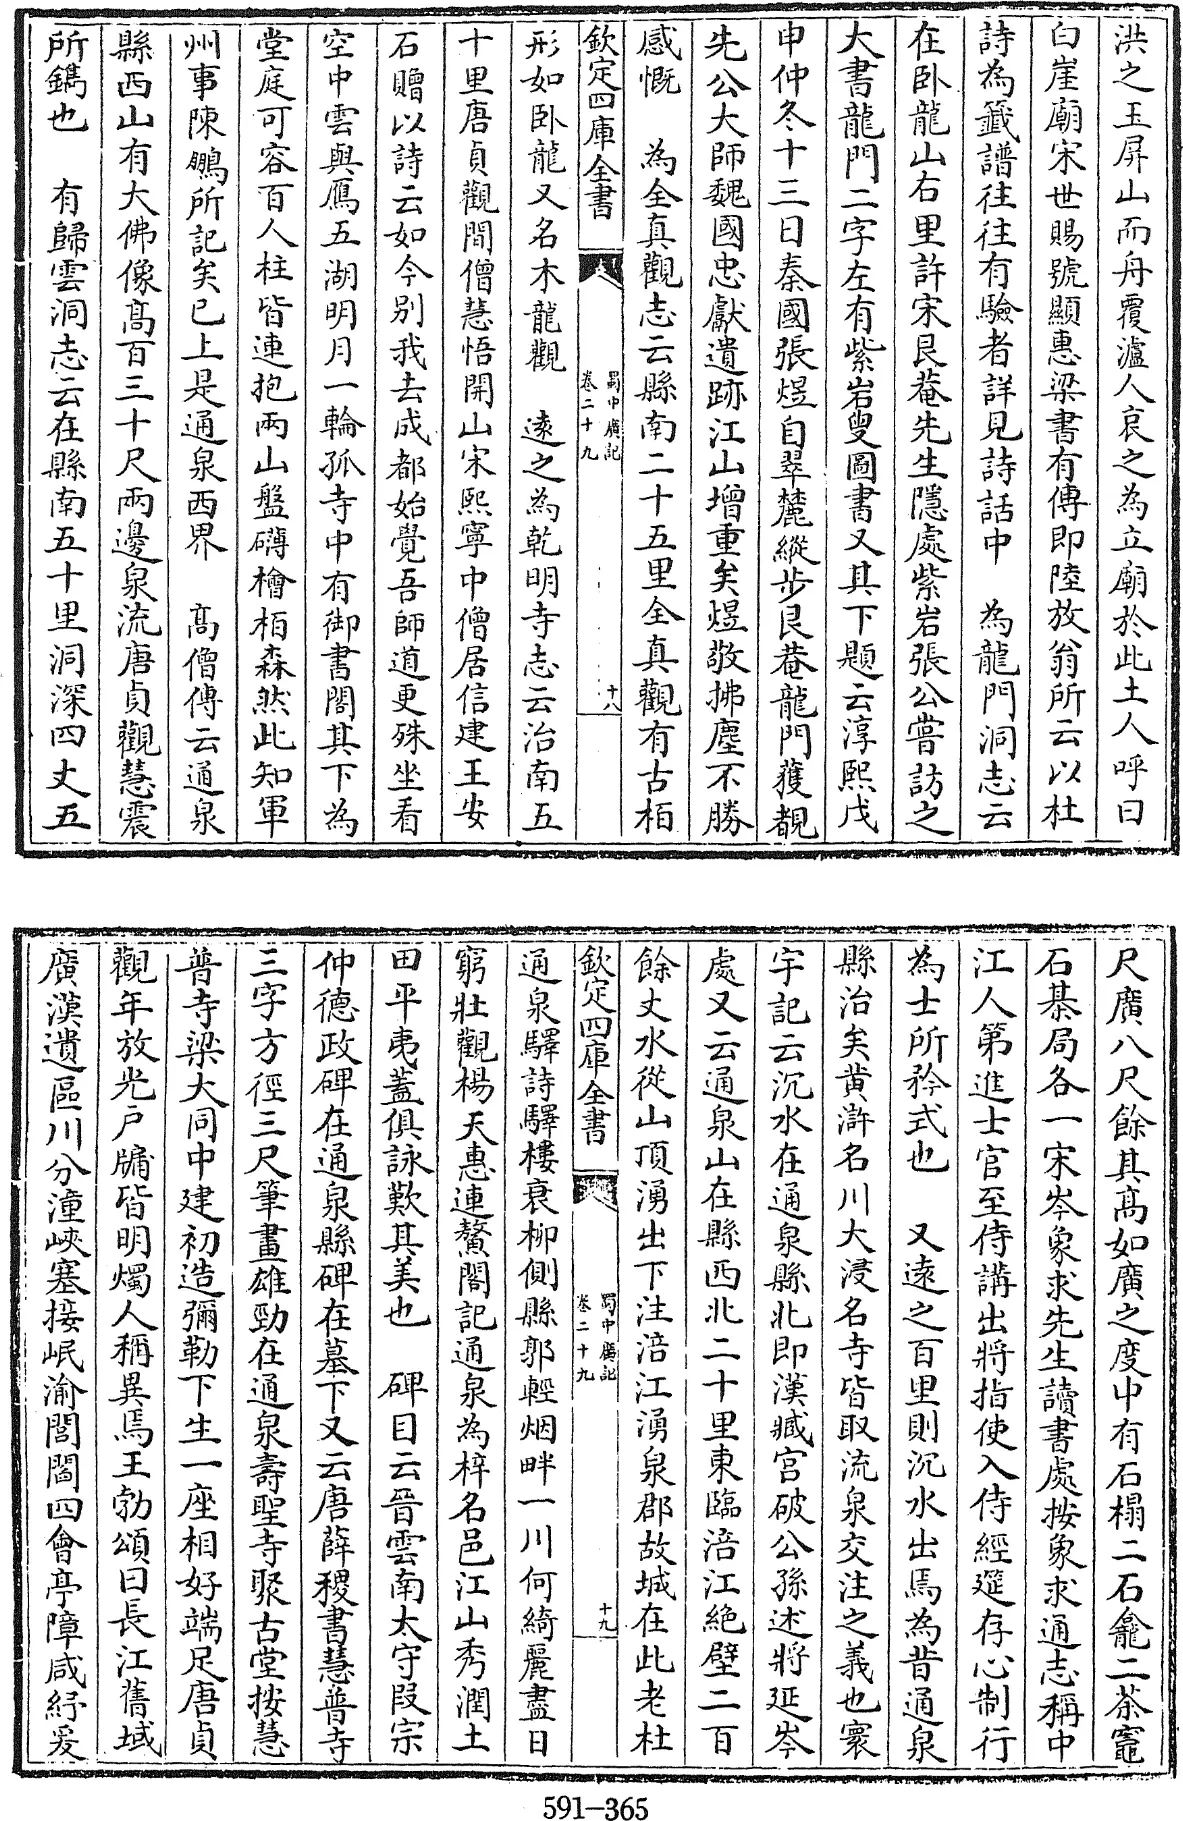 洪之玉屏山而舟覆瀘人哀之為立廟於此土人呼曰
白崖廟宋世賜號顯惠梁書有傳即陸放翁所云以杜
詩為籤譜往往有驗者詳見詩話中　為龍門洞志云
在卧龍山右里許宋艮菴先生隱處紫岩張公嘗訪之
大書龍門二字左有紫岩叟圖書又其下題云淳熙戊
申仲冬十三日秦國張煜自翠麓縱步艮菴龍門獲覩
先公大師魏國忠獻遺跡江山增重矣煜敬拂塵不勝
感慨　為全真觀志云縣南二十五里全真觀有古栢
欽定四庫全書
蜀中廣記
卷二十九
十八
形如卧龍又名木龍觀　遠之為乾明寺志云治南五
十里唐貞觀間僧慧悟開山宋熙寧中僧居信建王安
石贈以詩云如今别我去成都始覺吾師道更殊坐看
空中雲與鴈五湖明月一輪孤寺中有御書閣其下為
堂庭可容百人柱皆連抱兩山盤礴檜栢森然此知軍
州事陳鵬所記矣已上是通泉西界　髙僧傳云通泉
縣西山有大佛像髙百三十尺兩邊泉流唐貞觀慧震
所鐫也　有歸雲洞志云在縣南五十里洞深四丈五
尺廣八尺餘其髙如廣之度中有石榻二石龕二茶竈
石棊局各一宋岑象求先生讀書處按象求通志稱中
江人第進士官至侍講出將指使入侍經筵存心制行
為士所矜式也　又遠之百里則沉水出焉為昔通泉
縣治矣黄滸名川大浸名寺皆取流泉交注之義也寰
宇記云沉水在通泉縣北即漢臧宫破公孫述將延岑
處又云通泉山在縣西北二十里東臨涪江絶壁二百
餘丈水從山頂湧出下注涪江湧泉郡故城在此老杜
欽定四庫全書
蜀中廣記
卷二十九
十九
通泉驛詩驛樓衰柳側縣郭輕烟畔一川何綺麗盡日
窮壯觀楊天惠連鰲閣記通泉為梓名邑江山秀潤土
田平夷蓋俱詠歎其美也　碑目云晉雲南太守段宗
仲德政碑在通泉縣碑在墓下又云唐薛稷書慧普寺
三字方徑三尺筆畫雄勁在通泉壽聖寺聚古堂按慧
普寺梁大同中建初造彌勒下生一座相好端足唐貞
觀年放光戶牖皆明燭人稱異焉王勃頌曰長江舊域
廣漢遺區川分潼峽塞接岷渝閭閻四會亭障咸紆爰
591-365